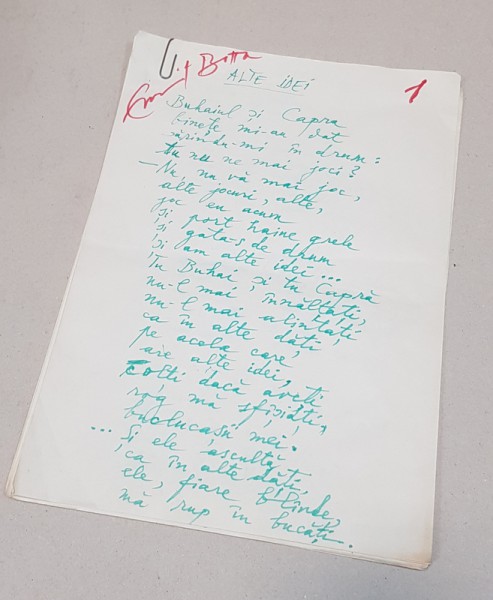 Emil Botta
1
ALTE IDEI
Buhaiul și Capra
binețe mi-au dat
sărindu-mi în drum:
tu nu ne mai joci?
— Nu, nu vă mai joc,
alte jocuri, alte,
joc eu acum
și port haine grele
și gata-s de drum
și am alte idei...
Tu Buhai și tu Capră
nu-l mai înnălțați,
nu-l mai alintați
ca în alte dăți
pe acela care,
are alte idei,
Colți dacă aveți
rog mă sfîșiați,
buclucașii mei.
... Și ele ascultă,
ca în alte dăți,
ele, fiare blînde,
mă rup în bucăți.